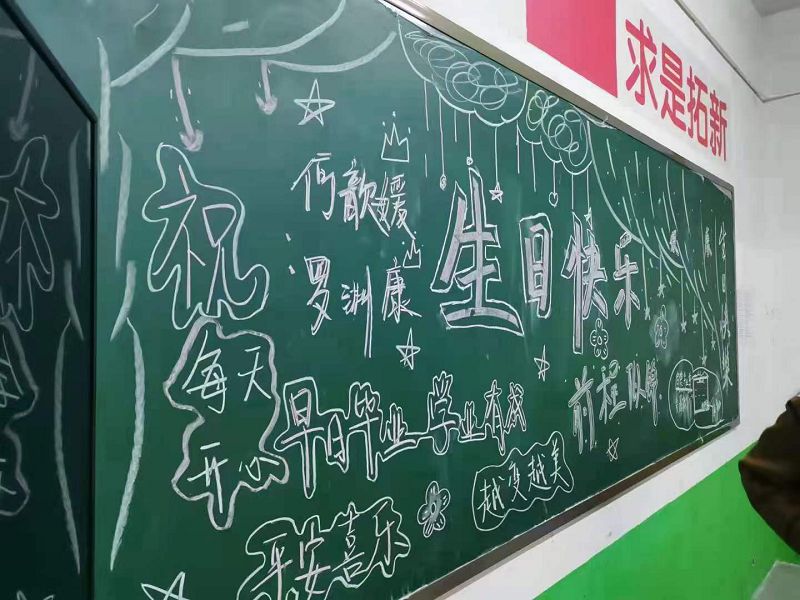 求是拓新
祝
何歆媛
罗渊康
生日快乐
每天
开心
早日毕业 学业有成
前程
越变越美
平安喜乐